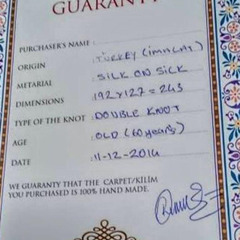 GUARANTY
PURCHASER'S NAME :
ORIGIN : TURKEY
METARIAL : SILK ON SICK
DIMENSIONS : 192 x 127 = 243
TYPE OF THE KNOT : DOUBLE KNOT
AGE : OLD (60 years)
DATE : 11-12-2014
WE GUARANTY THAT THE CARPET/KİLİM
YOU PURCHASED IS 100% HAND MADE.